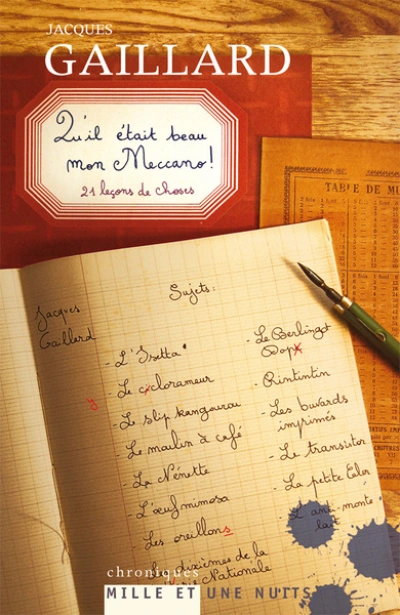 JACQUES
GAILLARD
Qu'il était beau
mon Meccano!
21 leçons de choses
TABLE DE MU
Jacques
Gaillard
Sujets:
- L'Isetta
- Le ciclorameur
y
- Le slip kangourou
- Le moulin à café
- La Nénette
- L'œuf mimosa
- Les oreillons
- Le Berlingot
Dop
- Rintintin
- Les buvards
imprimés
- Le transistor
- La petite
- L'anti-monte-
lait
dixièmes de la
Nationale
chroniques
MILLE ET UNE NUITS